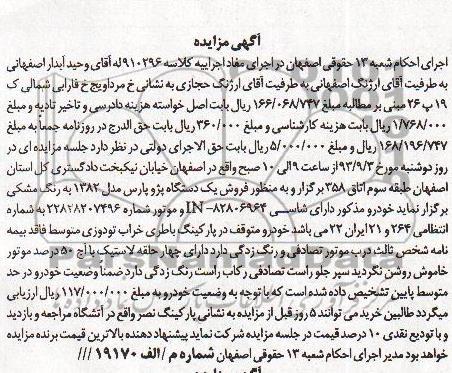 آگهی مزایده
اجرای احکام شعبه ۱۳ حقوقی اصفهان در اجرای مفاد اجراییه کلاسه ۹۱۰۲۹۶ له آقای وحید آبدار اصفهانی
به طرفیت آقای ارژنگ اصفهانی به طرفیت آقای ارژنگ حجازی به نشانی خ مرداویج خ فارابی شمالی ک
۱۹ پ ۲۶ مبنی بر مطالبه مبلغ ۱۶۶/۰۶۸/۷۴۷ ریال بابت اصل خواسته هزینه دادرسی و تاخیر تادیه و مبلغ
۱/۷۶۸/۰۰۰ ریال بابت هزینه کارشناسی و مبلغ ۳۶۰/۰۰۰ ریال بابت حق الدرج در روزنامه جمعا به مبلغ
۱۶۸/۱۹۶/۷۴۷ ریال و مبلغ ۵/۰۰۰/۰۰۰ ریال بابت حق الاجرای دولتی در نظر دارد جلسه مزایده ای در
روز دوشنبه مورخ ۹۳/۹/۳ از ساعت ۹ الی ۱۰ صبح واقع در اصفهان خیابان نیکبخت دادگستری کل استان
اصفهان طبقه سوم اتاق ۳۵۸ برگزار و به منظور فروش یک دستگاه پژو پارس مدل ۱۳۸۲ به رنگ مشکی
برگزار نماید خودرو مذکور دارای شاسی IN-۸۲۸۰۶۹۶۴ و موتور شماره ۲۲۸۲۸۲۰۷۴۹۶ به شماره
انتظامی ۲۶۴ و ۲۱ ایران ۲۲ می باشد خودرو متوقف در پارکینگ باطری خراب تودوزی متوسط فاقد بیمه
نامه شخص ثالث درب موتور تصادفی و رنگ زدگی دارد دارای چهار حلقه لاستیک با آج ۵۰ درصد موتور
خاموش روشن نگردید سپر جلو راست تصادفی رکاب راست رنگ زدگی دارد ضمنا وضعیت خودرو در حد
متوسط پایین تشخیص داده شده است که با توجه به وضعیت خودرو به مبلغ ۱۱۷/۰۰۰/۰۰۰ ریال ارزیابی
میگردد طالبین خرید می توانند ۵ روز قبل از مزایده به نشانی پارکینگ نصر واقع در آتشگاه مراجعه و بازدید
و با تودیع نقدی ۱۰ درصد قیمت در جلسه مزایده شرکت نماید پیشنهاد دهنده بالاترین قیمت برنده مزایده
خواهد بود مدیر اجرای احکام شعبه ۱۳ حقوقی اصفهان شماره م / الف ۱۹۱۷۰ ///